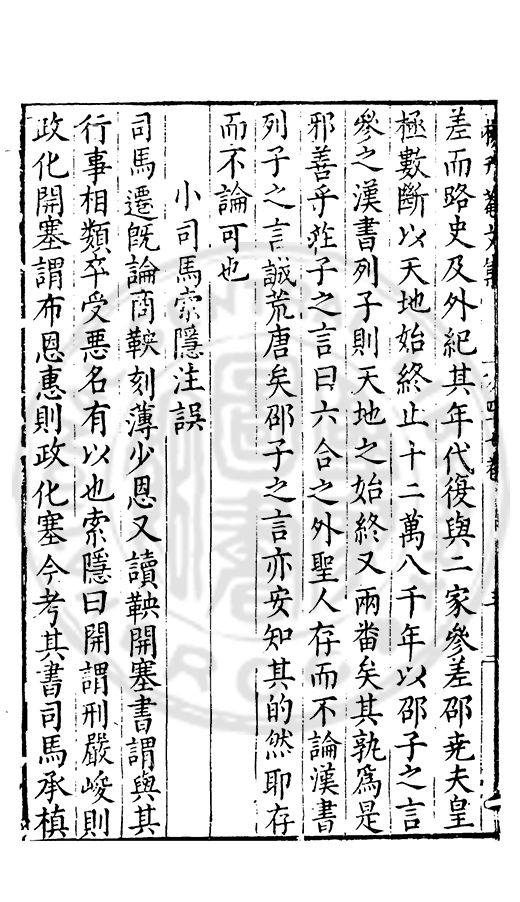 差而路史及外紀其年代復與二家參差邵堯夫皇
極數斷以天地始終止十二萬八千年以邵子之言
參之漢書列子則天地之始終又兩畨矣其孰爲是
邪善乎莊子之言曰六合之外聖人存而不論漢書
列子之言誠荒唐矣邵子之言亦安知其的然耶存
而不論可也
小司馬索隱注誤
司馬遷旣論商鞅刻薄少恩又讀鞅開塞書謂與其
行事相類卒受悪名有以也索隱曰開謂刑嚴峻則
政化開塞謂布恩惠則政化塞今考其書司馬承楨